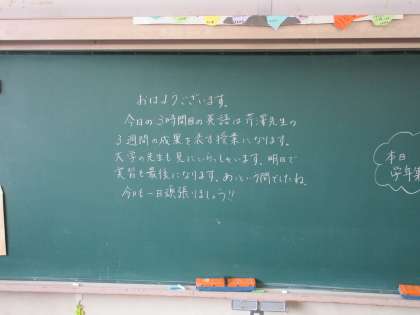 おはようございます。
今日の3時間目の英語は芹澤先生の
3週間の成果を表す授業になります。
大学の先生も見にいらっしゃいます。明日で
実習も最後になります。あっという間でしたね。
今日も一日頑張りましょう!!
本日
学年集